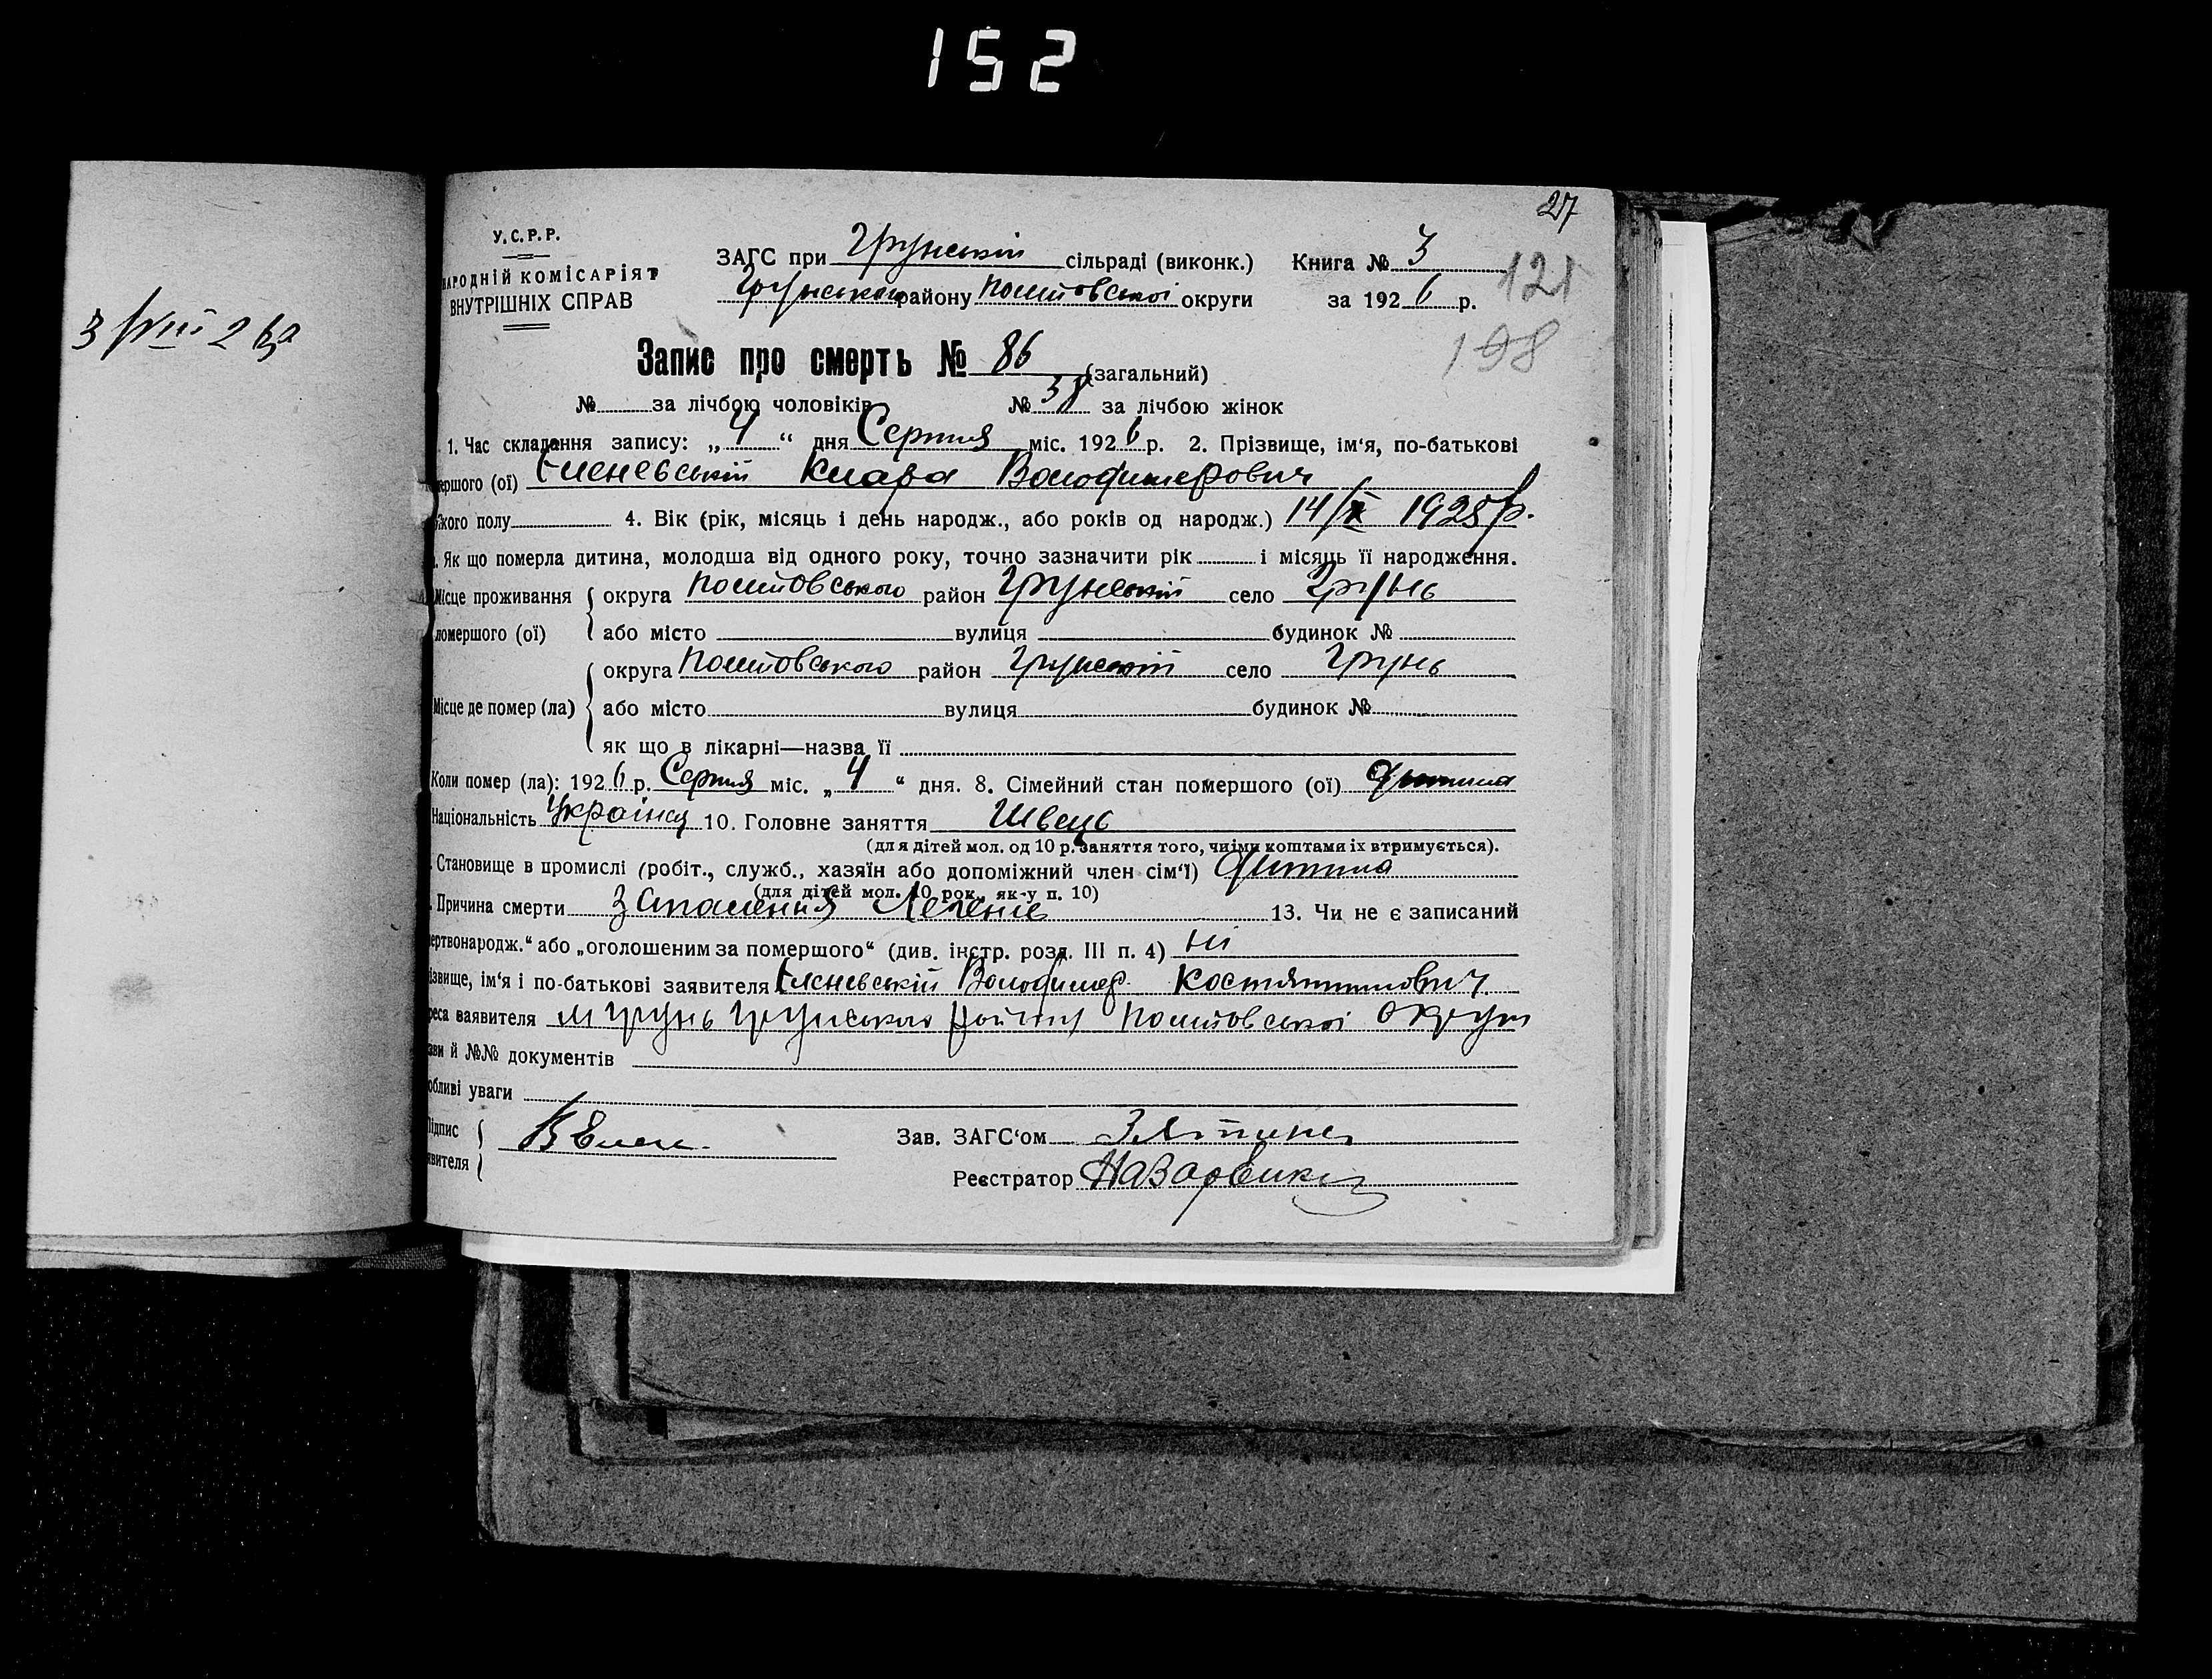 152
27
3/VIII 26р
У.С.Р.Р.
НАРОДНІЙ КОМІСАРІЯТ
ВНУТРІШНІХ СПРАВ
ЗАГС при Грунській сільраді (виконк.) Книга № 3
Грунського району Полтовської округи за 1926 р.
121
198
Запис про смерть № 86 (загальний)
№ за лічбою чоловіків № 38 за лічбою жінок
1. Час складання запису: „4“ дня Серпня міс. 1926 р. 2. Прізвище, ім‘я, по-батькові
першого (ої) Єленевській Клара Володимерович
кого полу 4. Вік (рік, місяць і день народж., або років од народж.) 14/X 1925 р.
Як що померла дитина, молодша від одного року, точно зазначити рік і місяць її народження.
Місце проживання округа Полтовського район Грунській село Грунь
помершого (ої) або місто вулиця будинок №
округа Полтовського район Грунській село Грунь
Місце де помер (ла) або місто вулиця будинок №
як що в лікарні—назва її
Коли помер (ла): 1926 р. Серпня міс. „4“ дня. 8. Сімейний стан помершого (ої) дитина
Національність Українец 10. Головне заняття Швець
(для дітей мол. од 10 р. заняття того, чиїми коштами їх втримується).
Становище в промислі (робіт., служб., хазяїн або допоміжний член сім‘ї) дитина
(для дітей мол. 10 рок., як-у п. 10)
Причина смерти Запалення Легенів 13. Чи не є записаний
ертвонародж.“ або „оголошеним за помершого“ (див. інстр. розд. III п. 4) ні
ізвище, ім‘я і по-батькові заявителя Єленевській Володимер Костянтинович
реса заявителя м Грунь Грунського Району Полтовської Округи
зви й №№ документів
обливі уваги
Підпис
явителя В Елен
Зав. ЗАГС‘ом
Реєстратор Назаренко